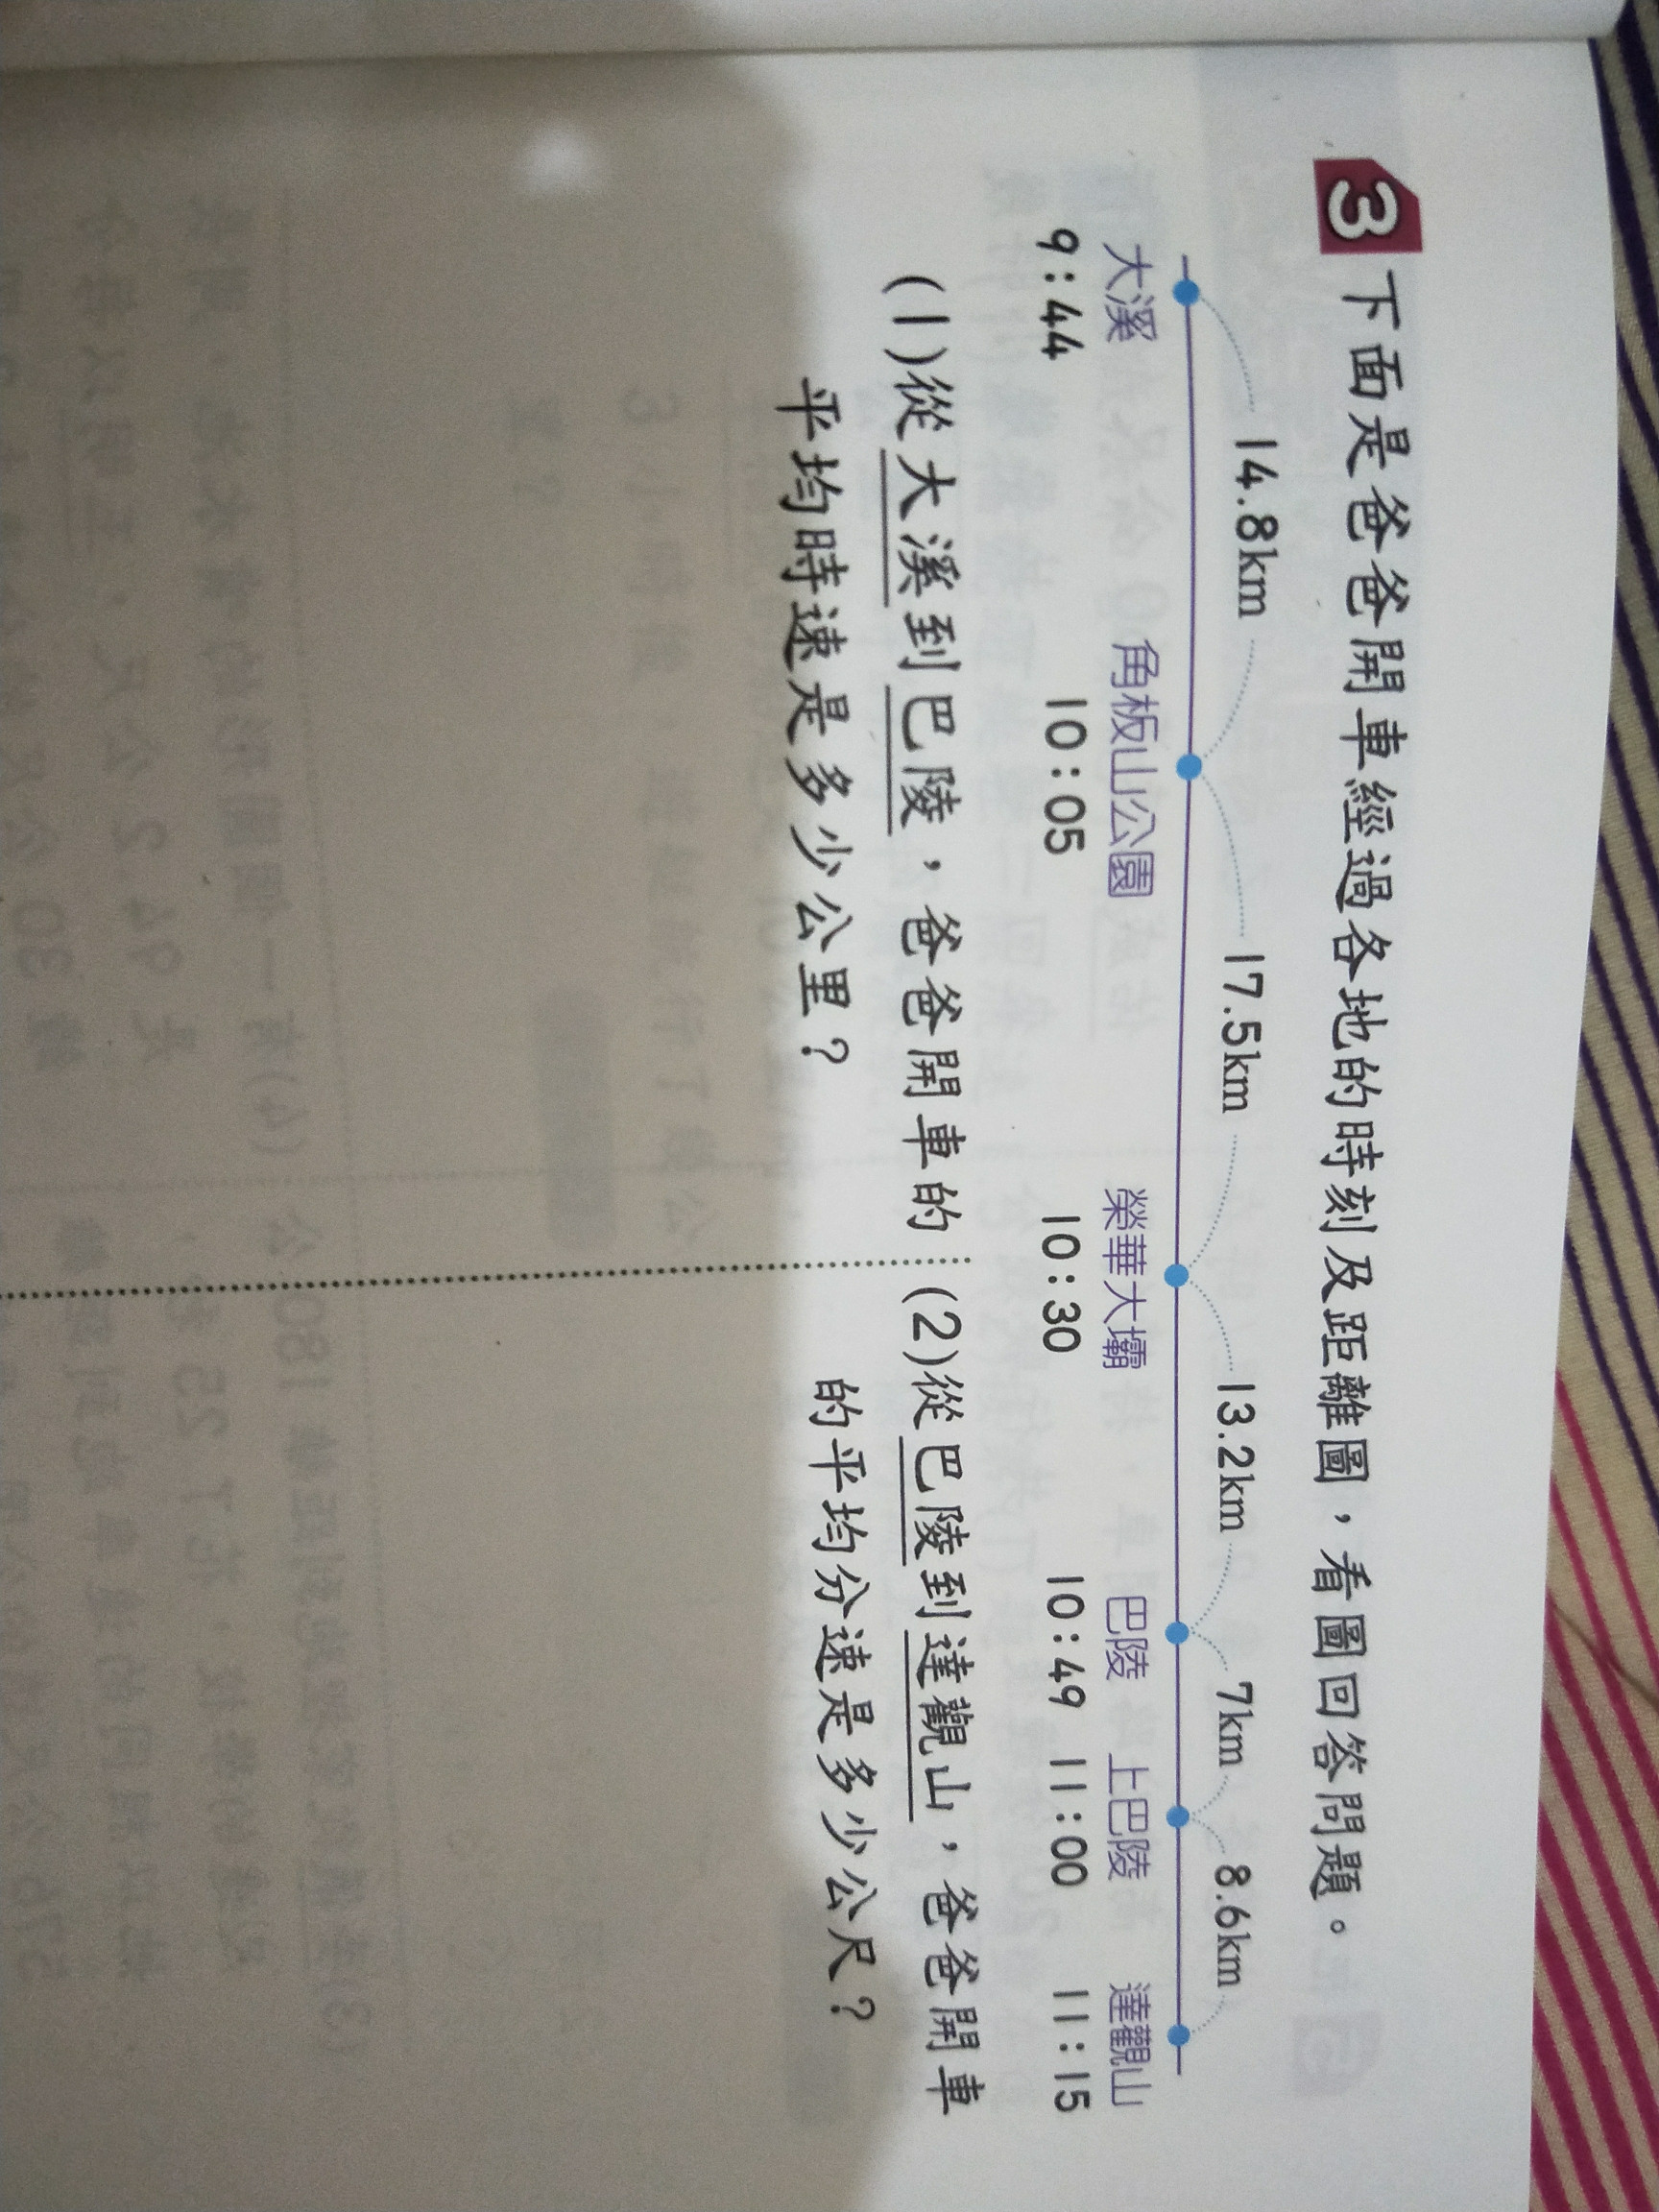 3 下面是爸爸開車經過各地的時刻及距離圖，看圖回答問題。
14.8km 17.5km 13.2km 7km 8.6km
大溪 角板山公園 榮華大壩 巴陵 上巴陵 達觀山
9:44 10:05 10:30 10:49 11:00 11:15
(1)從大溪到巴陵，爸爸開車的
平均時速是多少公里？
(2)從巴陵到達觀山，爸爸開車
的平均分速是多少公尺？